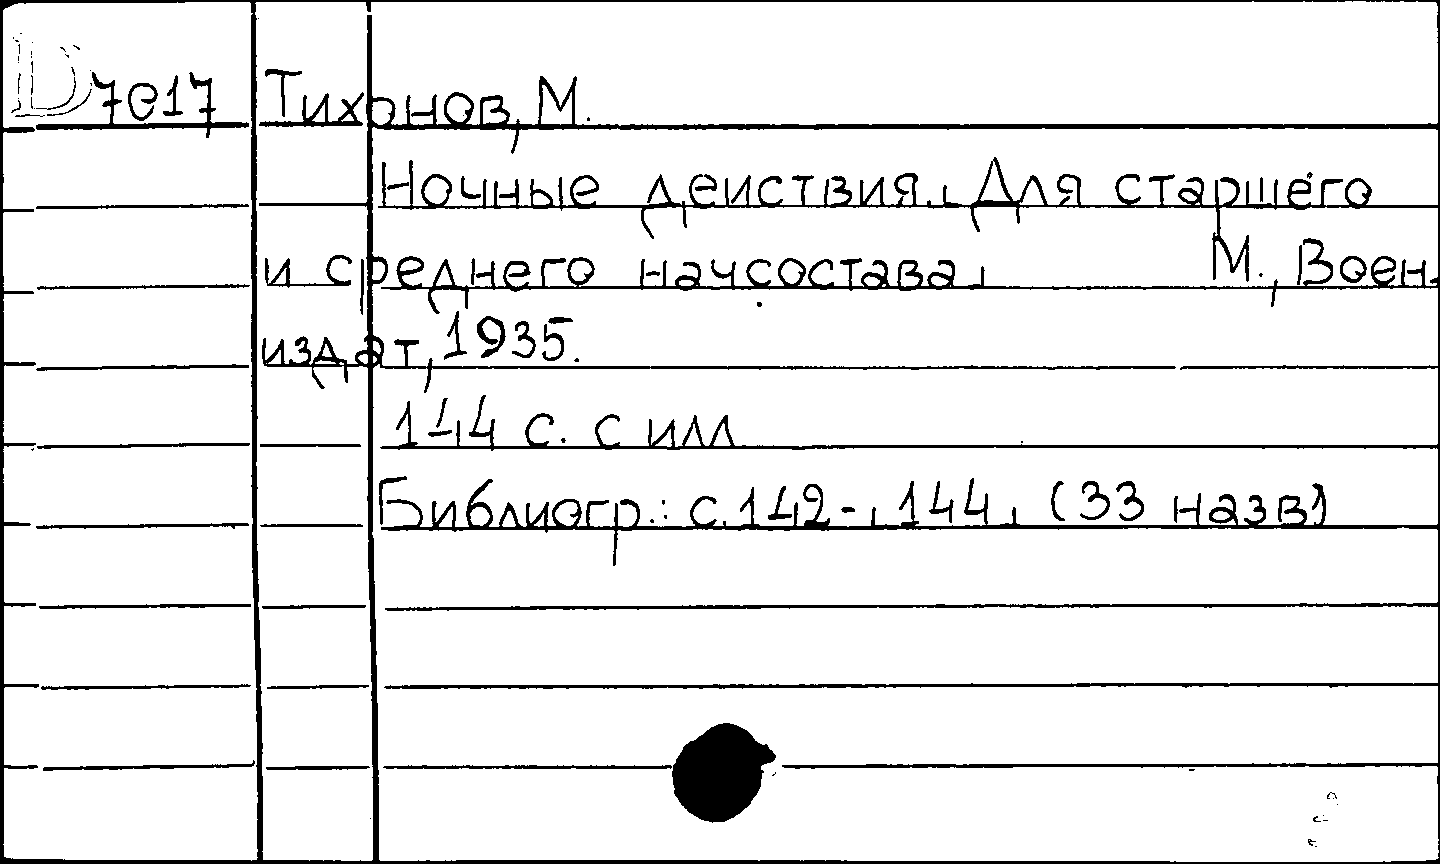 D7017 Тихонов, М.
Ночные действия. Для старшего
и среднего начсостава. М., Воен.
издат, 1935.
144 с. с илл
Библиогр.: с. 142-144. (33 назв)